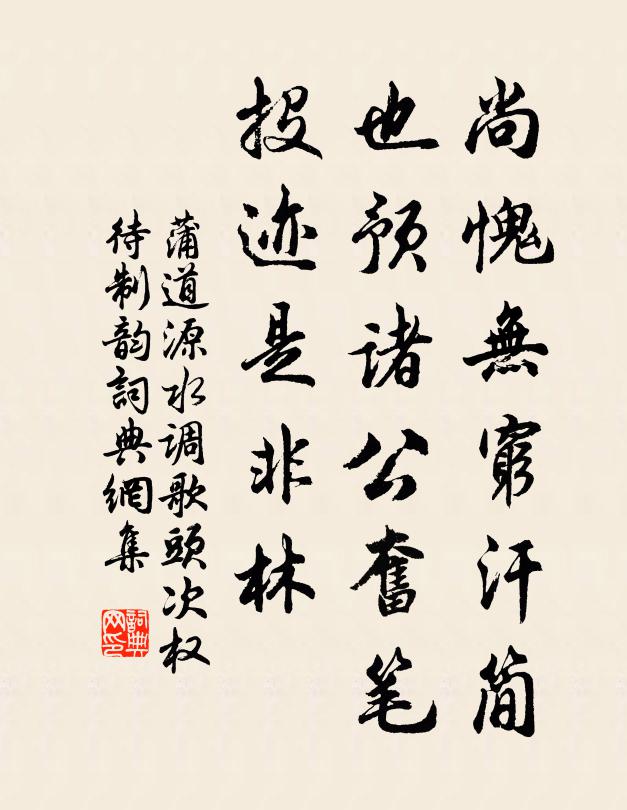 尚愧無窮汗简
也预诸公奮笔
投迹是非林
蒲道源水调歌頭次权
待制韵詞典網集
詞典网印